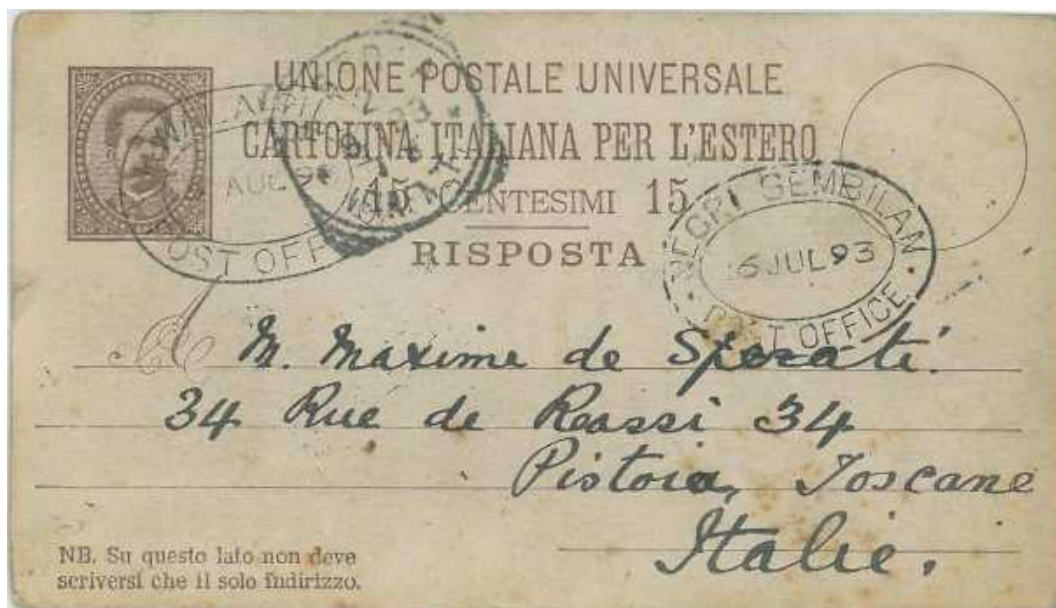 UNIONE POSTALE UNIVERSALE
CARTOLINA ITALIANA PER L'ESTERO
15 CENTESIMI 15
RISPOSTA
AUG
POST OFF
NEGRI SEMBILAN
6 JUL 93
POST OFFICE
M. Maxime de Sperati.
34 Rue de Reassi 34
Pistoia, Toscane
Italie.
NB. Su questo lato non deve
scriversi che il solo indirizzo.